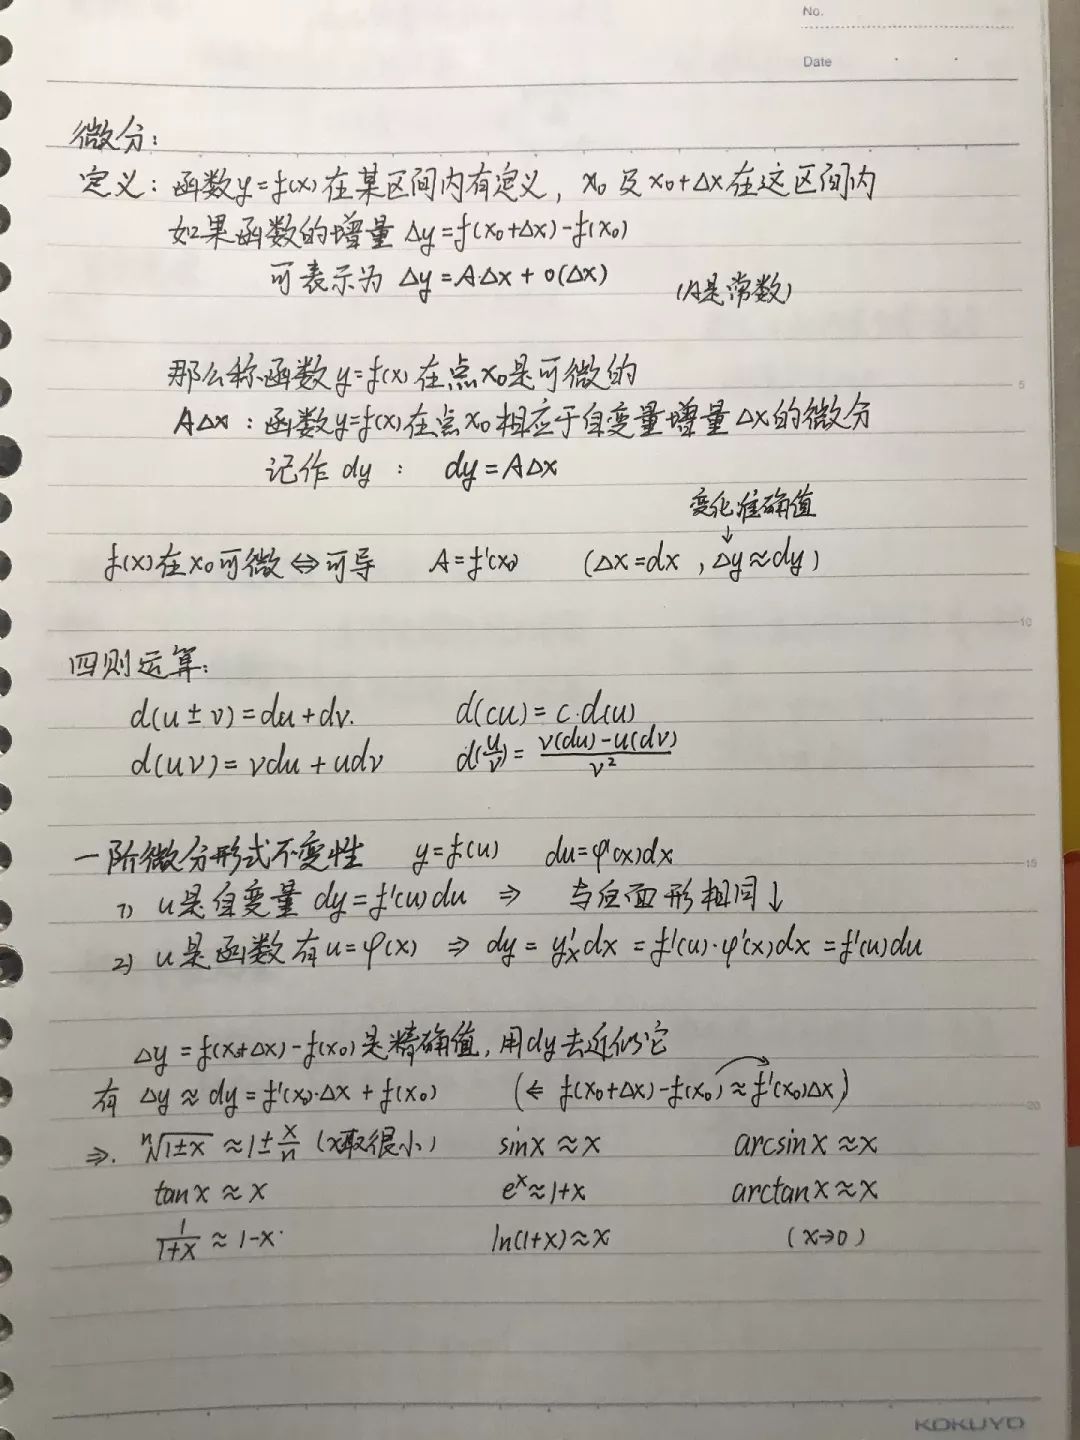 No.
Date
微分:
定义: 函数y=f(x)在某区间内有定义, x₀及x₀+Δx在这区间内
如果函数的增量 Δy=f(x₀+Δx)-f(x₀)
可表示为 Δy=A·Δx+o(Δx) (A是常数)
那么称函数y=f(x)在点x₀是可微的
AΔx: 函数y=f(x)在点x₀相应于自变量增量Δx的微分
记作dy: dy=AΔx
变化准确值
↓
f(x)在x₀可微⇔可导 A=f'(x₀) (Δx=dx, Δy≈dy)
四则运算:
d(u±v)=du+dv. d(cu)=c·d(u)
d(uv)=vdu+udv d(u/v)=(v(du)-u(dv))/v²
一阶微分形式不变性 y=f(u) du=φ'(x)dx
1) u是自变量 dy=f'(u)du ⇒ 与后面形相同↓
2) u是函数有u=φ(x) ⇒ dy=y'ₓdx=f'(u)·φ'(x)dx=f'(u)du
Δy=f(x₀+Δx)-f(x₀)是精确值, 用dy去近似它
有 Δy≈dy=f'(x₀)·Δx+f(x₀) (⇐ f(x₀+Δx)-f(x₀)≈f'(x₀)Δx)
⇒. ⁿ√(1±x)≈1±x/n (x取很小) sinx≈x arcsinx≈x
tanx≈x eˣ≈1+x arctanx≈x
1/(1+x)≈1-x. ln(1+x)≈x (x→0)
5
10
15
20
KOKUYO